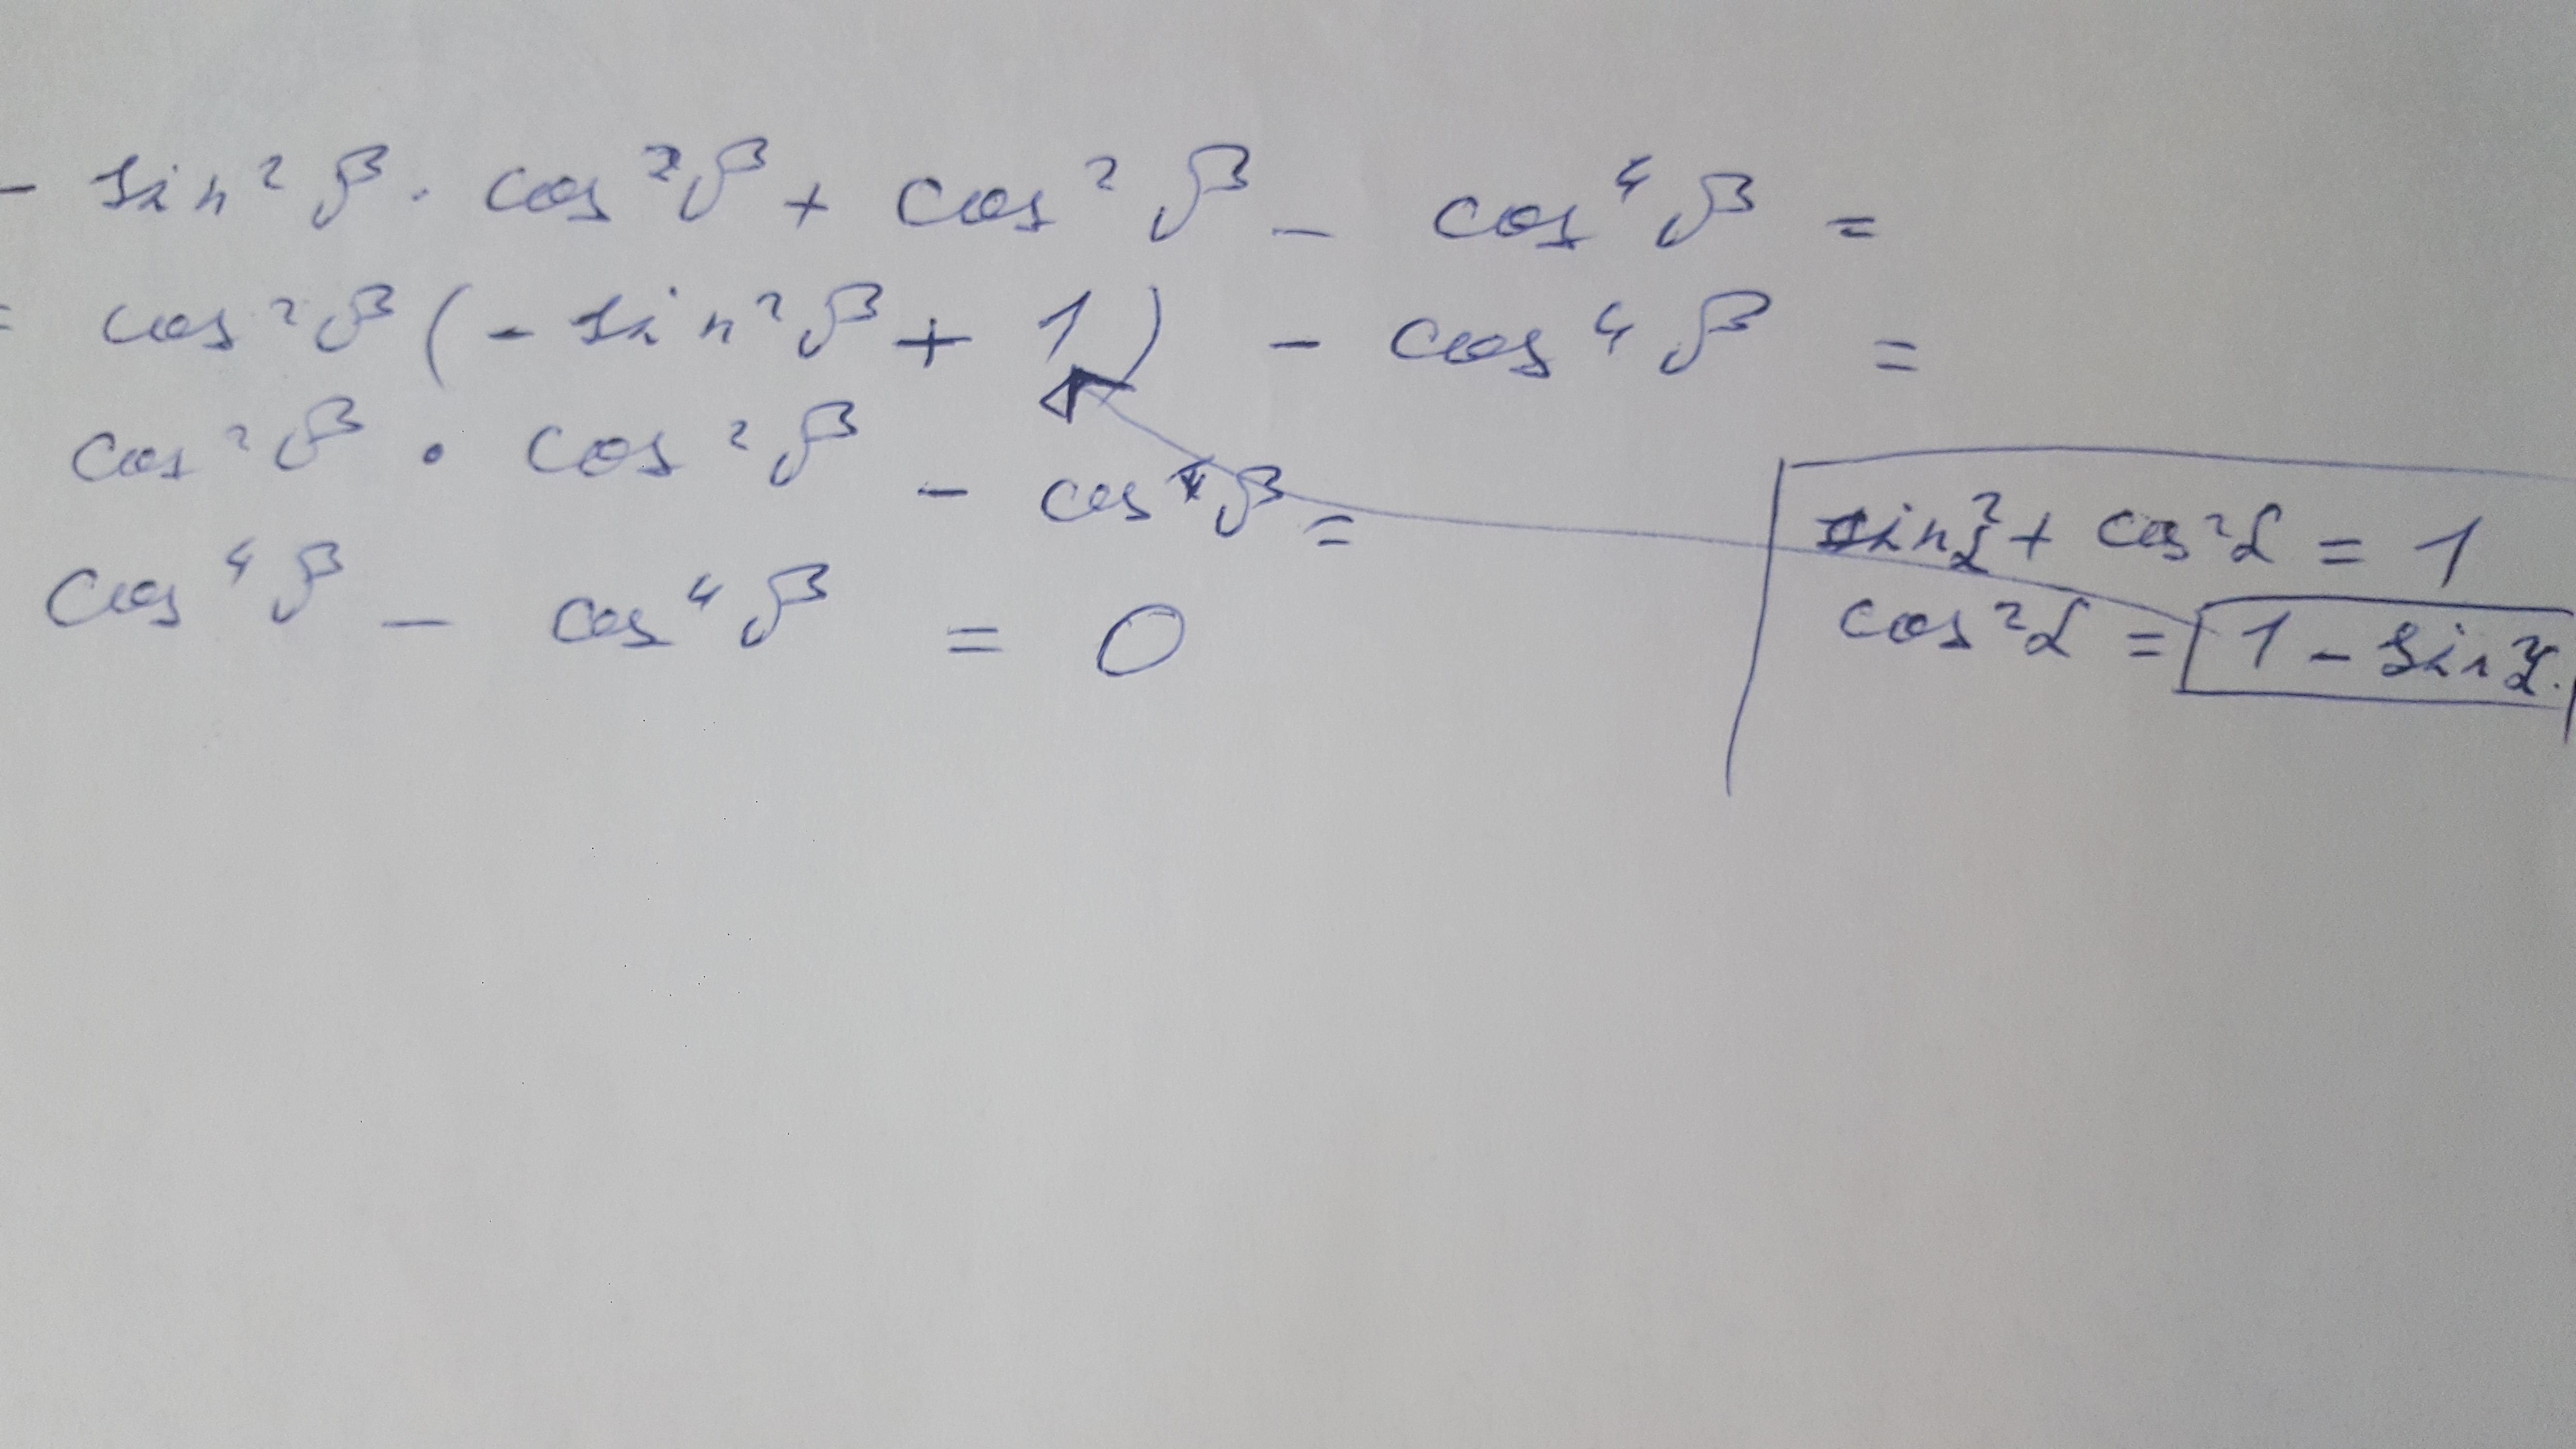 - sin²β · cos²β + cos²β - cos⁴β =
= cos²β (- sin²β + 1) - cos⁴β =
cos²β · cos²β - cos⁴β =
cos⁴β - cos⁴β = 0
sin²α + cos²α = 1
cos²α = 1 - sin²α.